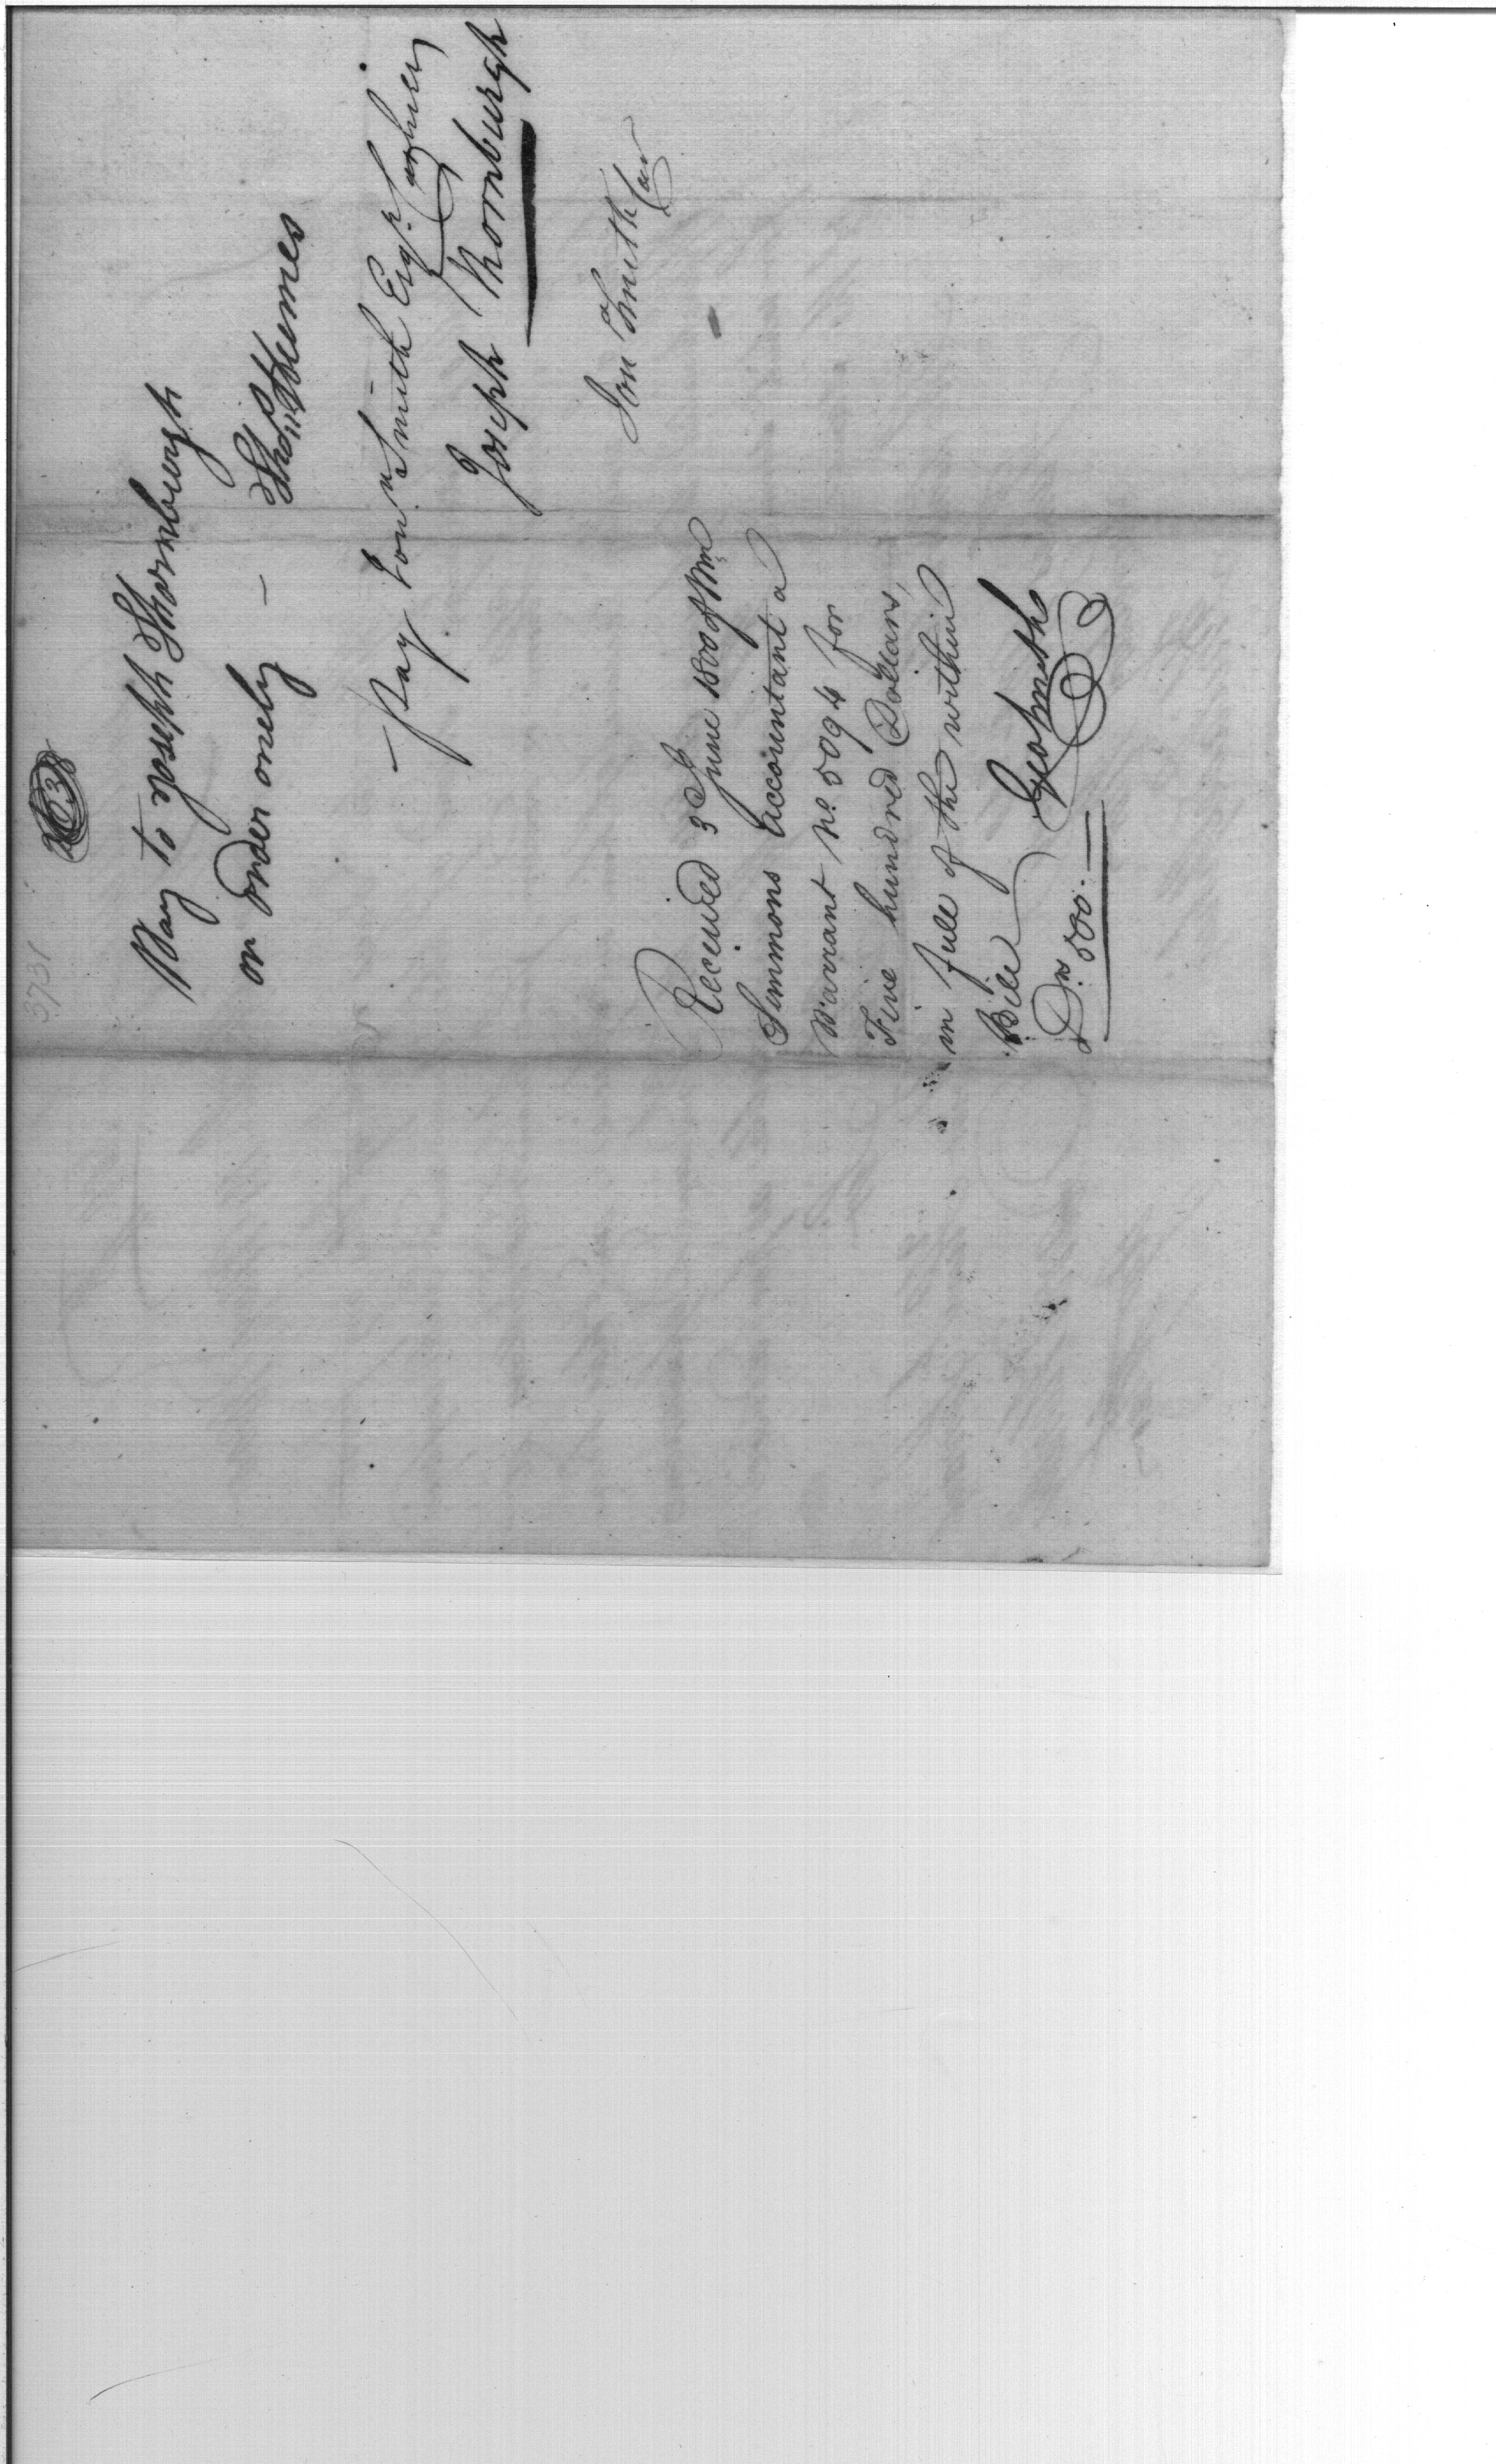 3731
Pay to Joseph Thornburgh
or order onely —
Thos. Humes
Pay Jona. Smith Esqr. Cashier
Joseph Thornburgh
Jona Smith Cas
Received 3 June 1800 of Wm
Simmons Accountant a
Warrant No. 5094 for
Five hundred Dollars,
in full of the within
Bill
Geo Smith
Drs 500.—